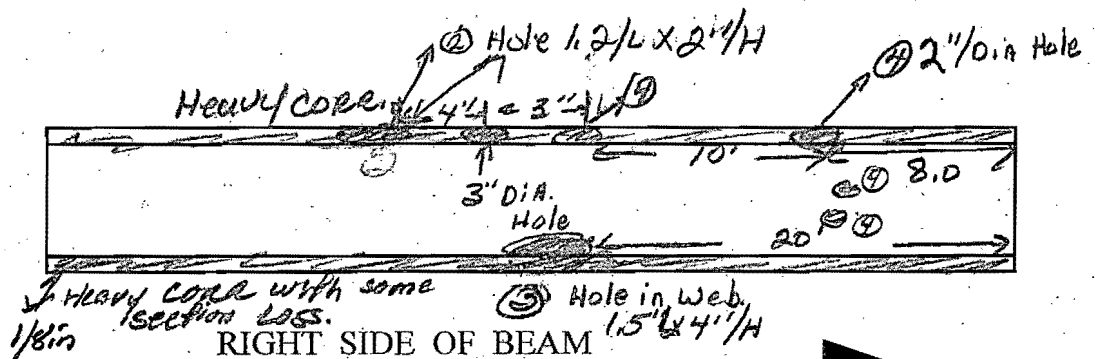 ② Hole 1.2/L X 2"/H
④ 2"/Dia Hole
Heavy corr.
4" 3" ④
10'
8.0
3" DIA.
Hole
④
20' ④
Heavy corr with some
section Loss.
1/8in
③ Hole in Web.
1.5"L x 4"/H
RIGHT SIDE OF BEAM